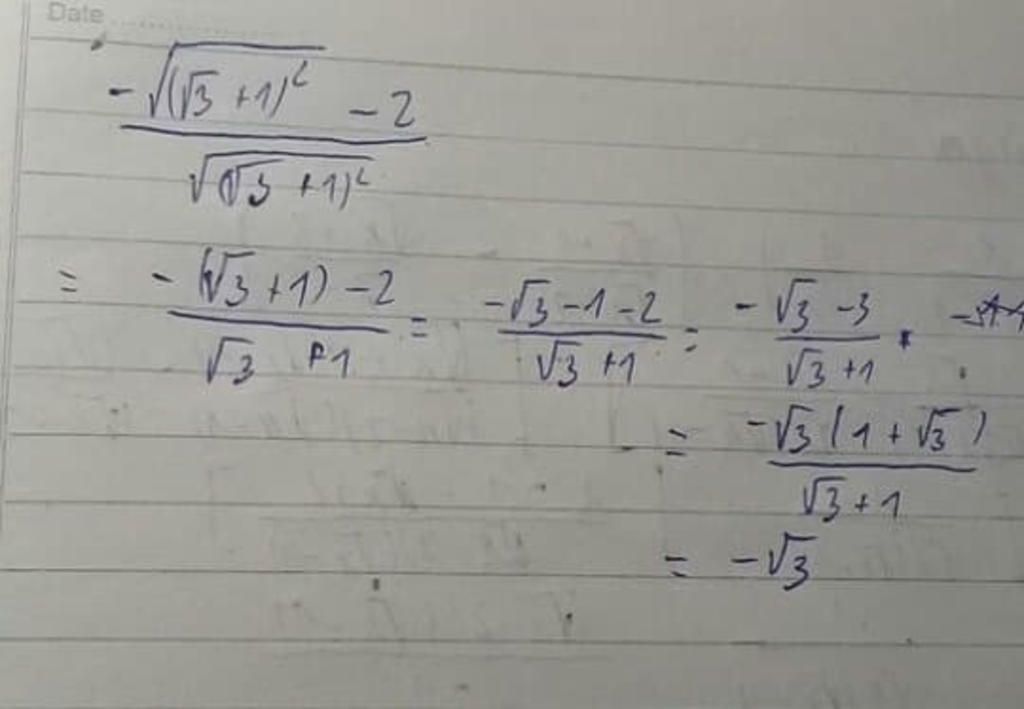 Date
-√(√3 + 1)² - 2
√(√3 + 1)²
= -(√3 + 1) - 2 / √3 + 1 = -√3 - 1 - 2 / √3 + 1 = -√3 - 3 / √3 + 1 ·
= -√3 (1 + √3) / √3 + 1
= -√3